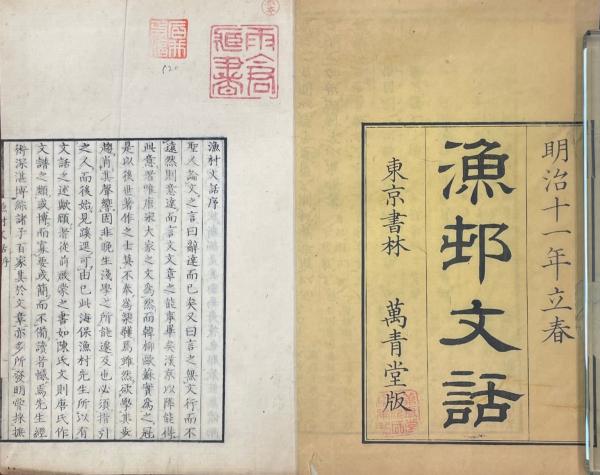 明治十一年立春
漁邨文話
東京書林 萬青堂版
520
漁村文話序
聖人論文之言曰辭達而已矣又曰言之無文行而不
遠然則意達而言文文章之能事畢矣漢京以降能得
此意者唯唐宋大家之文爲然而韓柳歐蘇實爲之冠
是以後世著作之士莫不奉爲模範焉雖然欲學其
趨尚其聲響固非晚生淺學之所能遽及也必須指引
之人而後始見蹊逕可由已此海保漁村先生所以有
文話之述歟顧舊從前啟蒙之書如陳氏文則唐氏作
文譜之類或博而寡要或簡而不備讀者憾焉先生經
術深湛博綜諸子百家其於文章亦多所發明嘗採摭